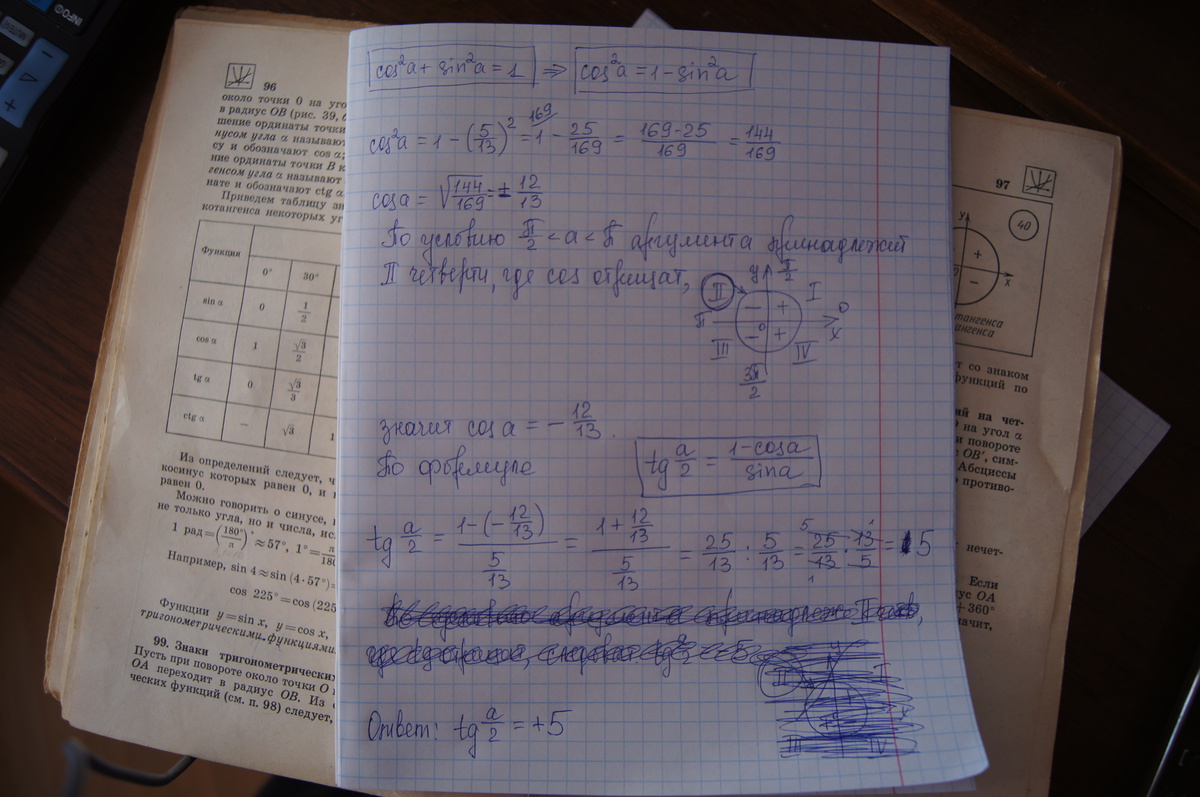 cos²a + sin²a = 1 ⇒ cos²a = 1 - sin²a
cos²a = 1 - (5/13)² = 1 - 25/169 = (169-25)/169 = 144/169
169
cos a = √144/169 = ± 12/13
По условию π/2 < a < π аргумента принадлежит
II четверти, где cos отрицат,
y π/2
II I
- +
π 0 0
- + x
III IV
3π/2
значит cos a = - 12/13.
По формуле tg a/2 = (1-cosa)/sina
tg a/2 = (1-(-12/13))/(5/13) = (1+12/13)/(5/13) = 25/13 : 5/13 = 25/13 · 13/5 = 5
5 1
1
Ответ: tg a/2 = +5
II I
III IV
96
около точки O на уго
в радиус OB (рис. 39,
шение ординаты точки
нусом угла α называют
су и обозначают cos α;
ние ординаты точки B к
генсом угла α называют
нате и обозначают ctg α.
Приведем таблицу зн
котангенса некоторых уг
Функция
0° 30°
sin α 0 1/2
cos α 1 √3/2
tg α 0 √3/3
ctg α — √3 1
Из определений следует, ч
косинус которых равен 0, и
равен 0.
Можно говорить о синусе,
не только угла, но и числа, ис
1 рад = (180°/π)° ≈ 57°, 1° = π/180
Например, sin 4 ≈ sin (4 · 57°) =
cos 225° = cos (225
Функции y = sin x, y = cos x,
тригонометрическими функциями.
99. Знаки тригонометрических
Пусть при повороте около точки O
OA переходит в радиус OB. Из
ческих функций (см. п. 98) следует,
97
40
y
+
x
−
тангенса
ангенса
т со знаком
функций по
ий на чет-
на угол α
и повороте
OB′, сим-
Абсциссы
, противо-
нечет-
Если
ус OA
+ 360°
начит,
INFO
MUTE